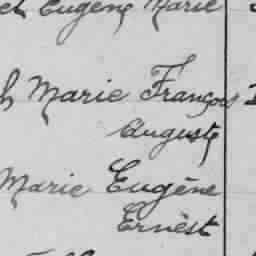 Eugène Marie
Marie François
Auguste
Marie Eugène
Ernest